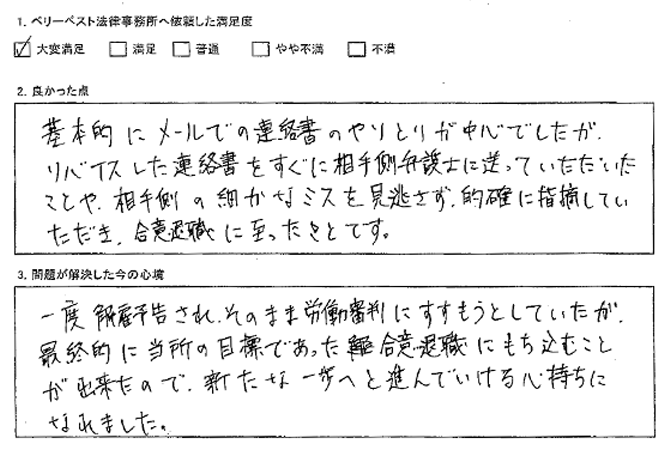 1. ベリーベスト法律事務所へ依頼した満足度
☑ 大変満足 □ 満足 □ 普通 □ やや不満 □ 不満
2. 良かった点
基本的にメールでの連絡書のやりとりが中心でしたが、
リバイスした連絡書をすぐに相手側弁護士に送っていただいた
ことや、相手側の細かなミスを見逃さず、的確に指摘してい
ただき、合意退職に至ったことです。
3. 問題が解決した今の心境
一度解雇予告され、そのまま労働審判にすすもうとしていたが、
最終的に当所の目標であった合意退職にもち込むこと
が出来たので、新たな一歩へと進んでいける心持ちに
なれました。